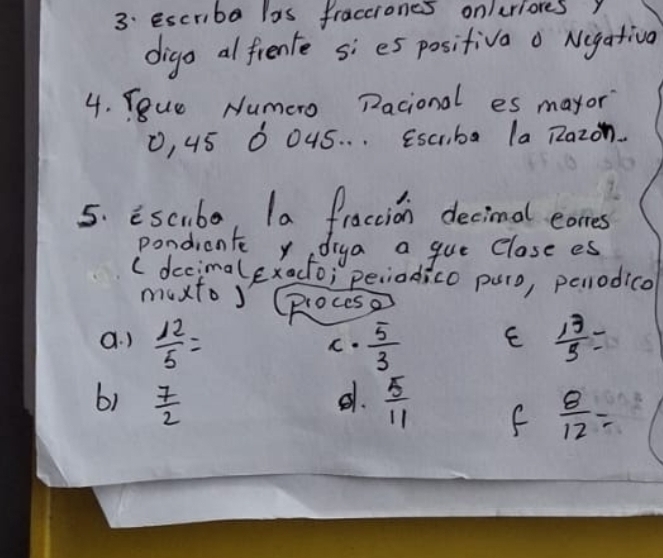 3. Escriba las fracciones anteriores y
diga al frente si es positiva o Negativa
4. ¿que Numero Racional es mayor
0,45 ó 045... Escriba la Razón.
5. escriba la fracción decimal corres
pondiente y diga a que clase es
( decimal Exacto; periodico puro, periodico
mixto ) (Proceso)
a.) 12/5 = c. 5/3 E 13/3 =
b) 7/2 d. 5/11 f 8/12 =